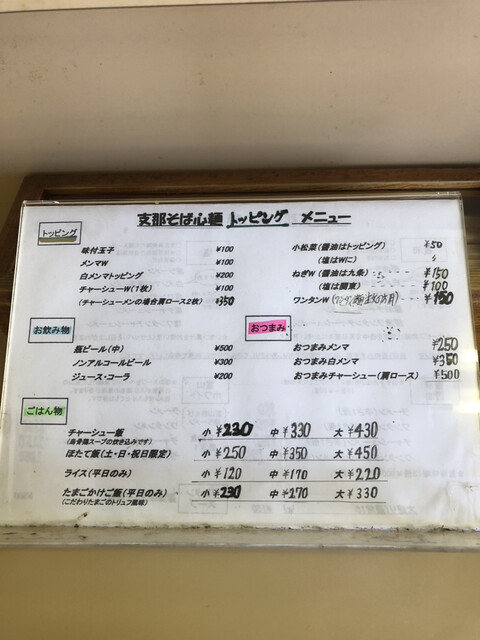 支那そば心麺 トッピング メニュー
トッピング
味付玉子 ¥100
メンマW ¥100
白メンマトッピング ¥200
チャーシューW(1枚) ¥100
(チャーシューメンの場合肩ロース2枚) ¥350
小松菜(醤油はトッピング) ¥50
(塩はWに) 〃
ねぎW(醤油は九条) ¥150
(塩は関東) ¥100
ワンタンW ¥150
お飲み物
瓶ビール(中) ¥500
ノンアルコールビール ¥300
ジュース・コーラ ¥200
おつまみ
おつまみメンマ ¥250
おつまみ白メンマ ¥350
おつまみチャーシュー(肩ロース) ¥500
ごはん物
チャーシュー飯 小 ¥230 中 ¥330 大 ¥430
(烏骨鶏スープの炊き込みです)
ほたて飯(土・日・祝日限定) 小 ¥250 中 ¥350 大 ¥450
ライス(平日のみ) 小 ¥120 中 ¥170 大 ¥220
たまごかけご飯(平日のみ) 小 ¥230 中 ¥270 大 ¥330
(こだわりたまごのトリュフ風味)